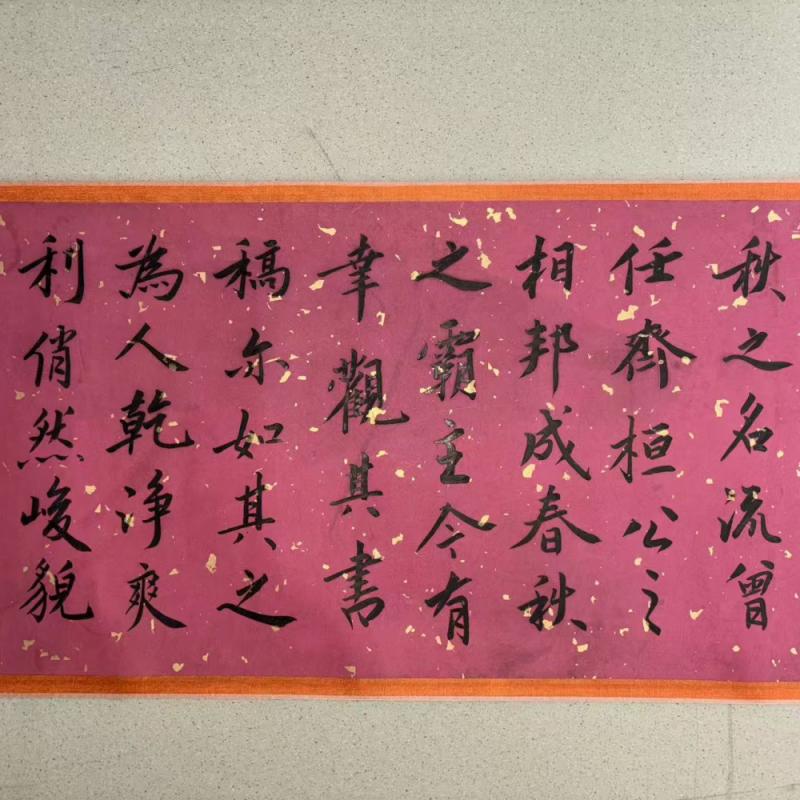 秋之名流曾
任齊桓公之
相邦成春秋
之霸主今有
幸觀其書
稿尔如其之
為人乾淨爽
利俏然峻貌